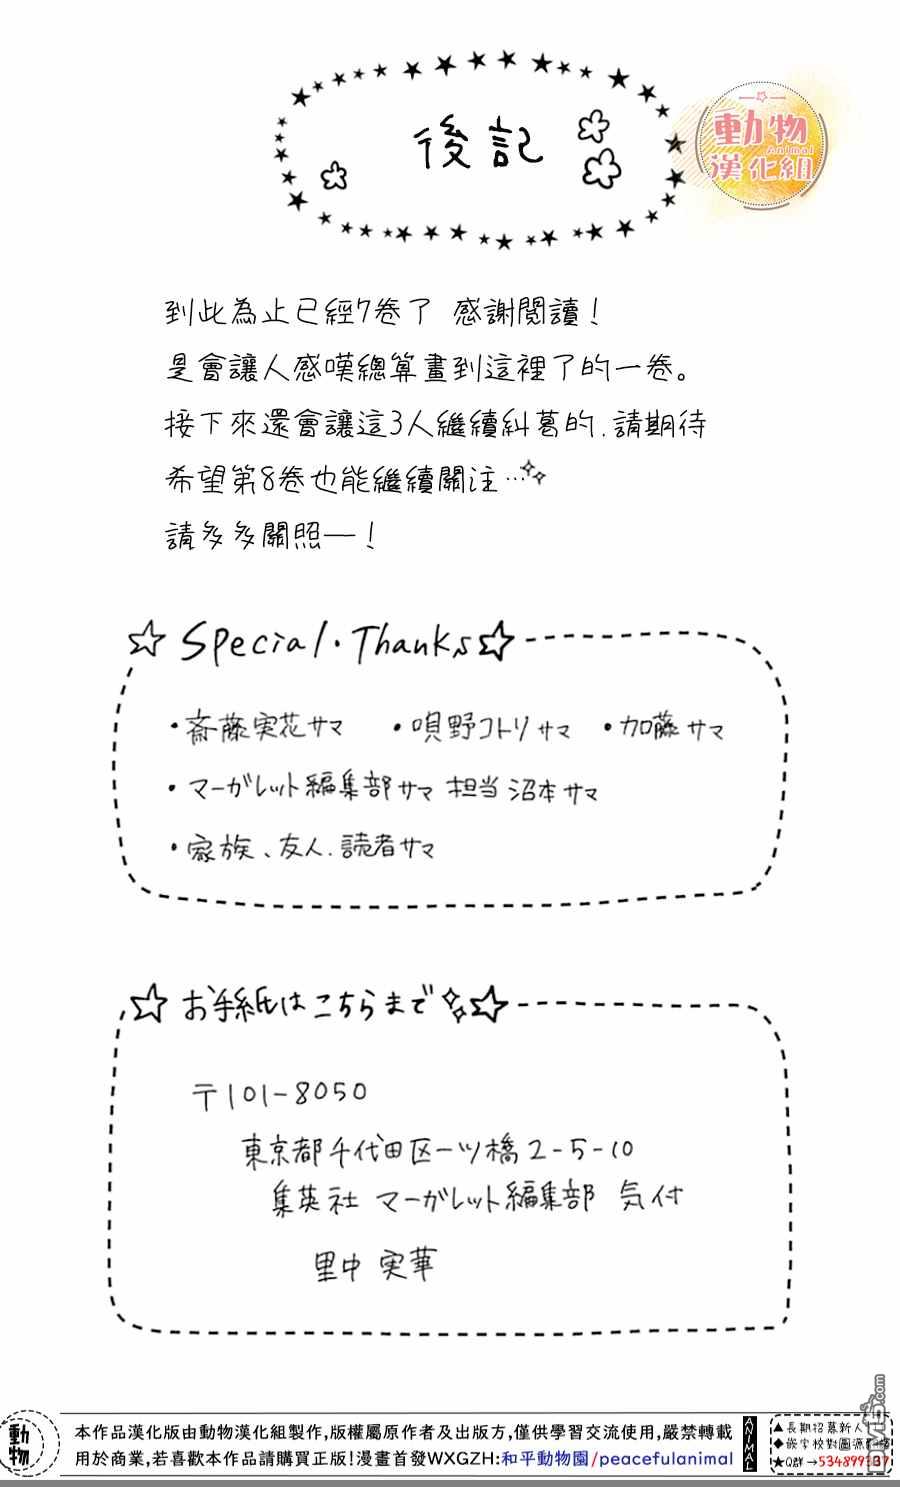 後記
動物
Animal
漢化組
到此為止已經7卷了 感謝閱讀！
是會讓人感嘆總算畫到這裡了的一卷。
接下來還會讓這3人繼續糾葛的.請期待
希望第8卷也能繼續關注…
請多多關照—！
☆Special・Thanks☆
・斎藤実花サマ ・唄野コトリサマ ・加藤サマ
・マーガレット編集部サマ 担当 沼本サマ
・家族、友人.読者サマ
☆お手紙はこちらまで☆
〒101-8050
東京都千代田区一ツ橋2-5-10
集英社 マーガレット編集部 気付
里中 実華
動物
本作品漢化版由動物漢化組製作,版權屬原作者及出版方,僅供學習交流使用,嚴禁轉載
用於商業,若喜歡本作品請購買正版!漫畫首發WXGZH:和平動物園/peacefulanimal
ANIMAL
▲長期招募新人
◆嵌字校對圖源翻譯
★Q群→534899337
.com